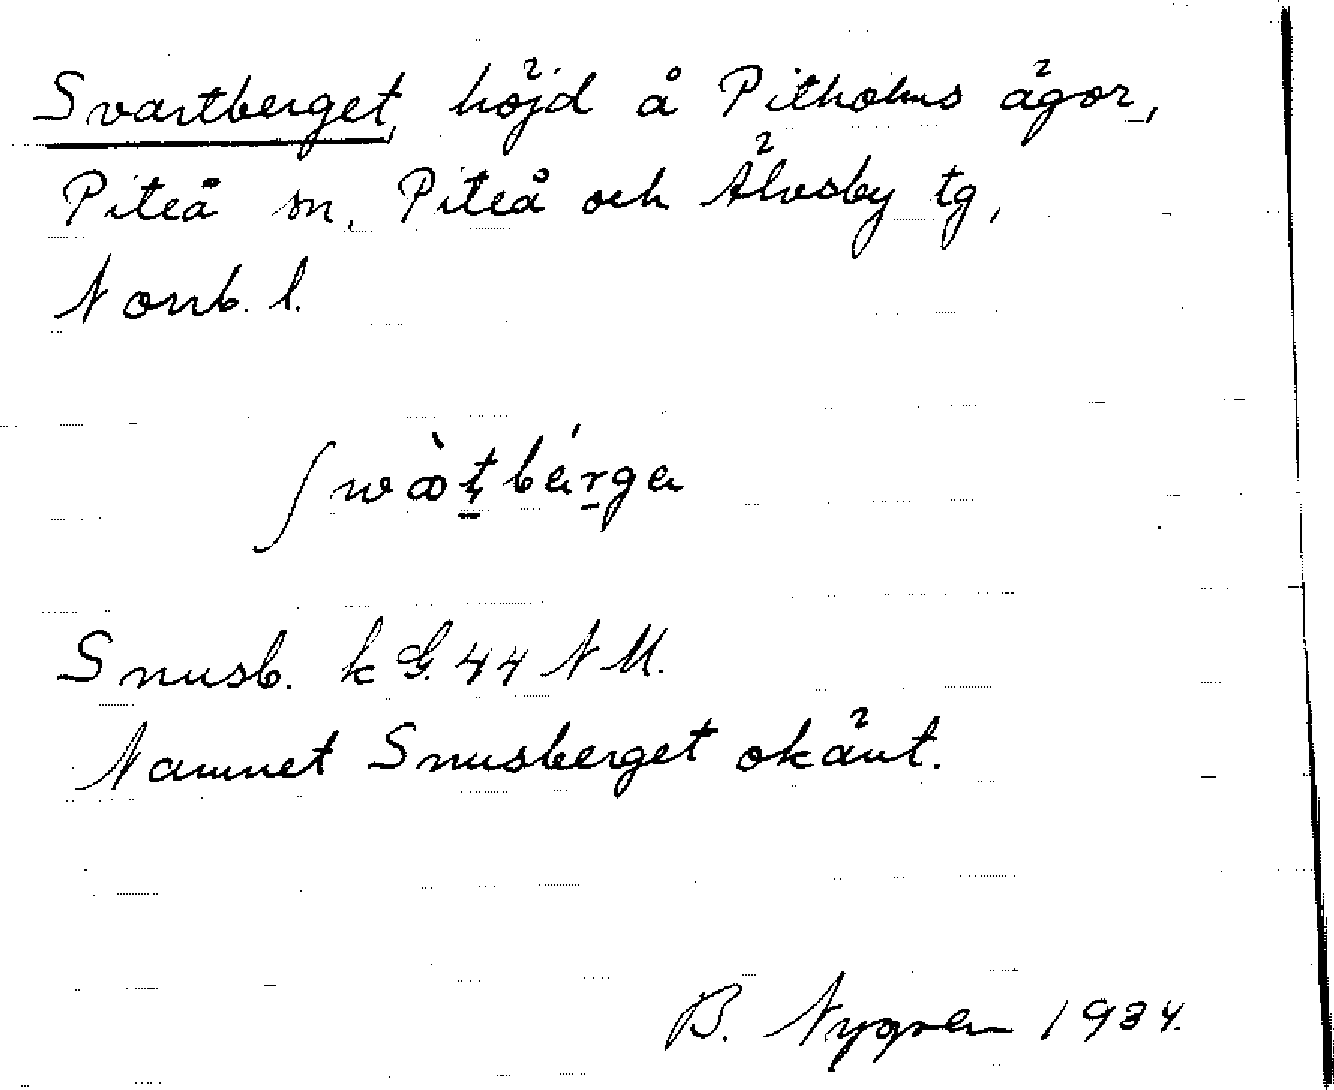 Svartberget, höjd å Pitholms ägor,
Piteå sn, Piteå och Älvsby tg,
Norrb. l.
Snusb. k G. 44 N M.
Namnet Snusberget okänt.
B. Nygren 1934.